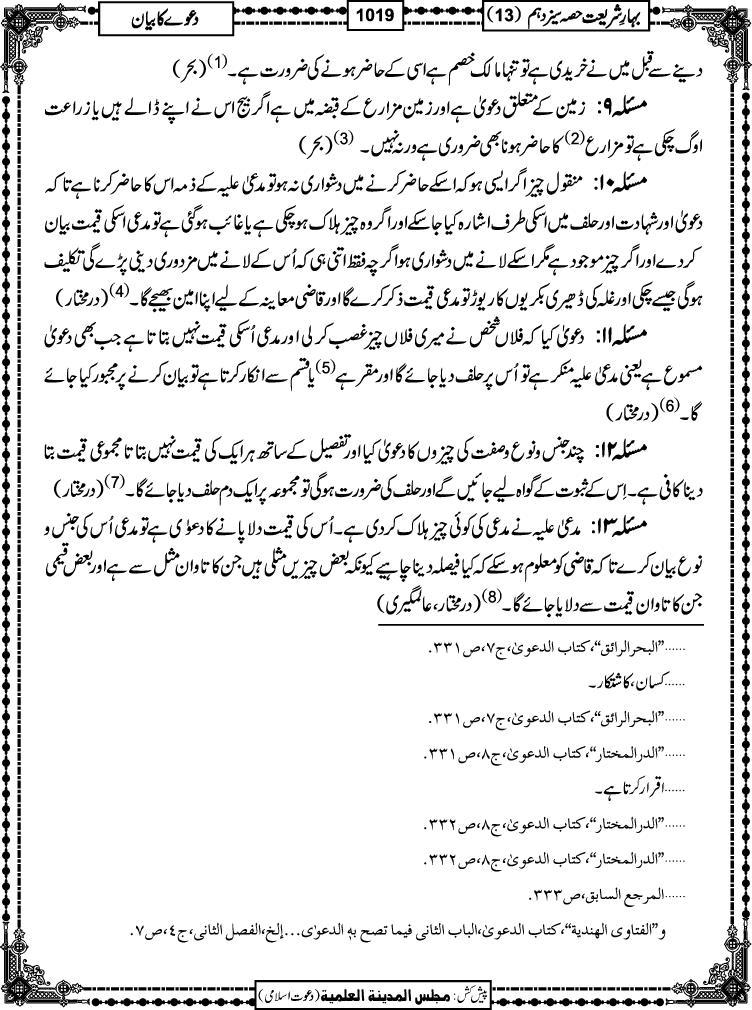 بہارِ شریعت حصہ سیزدہم (13)
1019
دعوے کا بیان
دینے سے قبل میں نے خریدی ہے تو تنہا مالک خصم ہے اسی کے حاضر ہونے کی ضرورت ہے۔(1) (بحر)
مسئلہ ۹: زمین کے متعلق دعویٰ ہے اور زمین مزارع کے قبضہ میں ہے اگر بیج اس نے اپنے ڈالے ہیں یا زراعت
اوگ چکی ہے تو مزارع(2) کا حاضر ہونا بھی ضروری ہے ورنہ نہیں۔(3) (بحر)
مسئلہ ۱۰: منقول چیز اگر ایسی ہو کہ اسکے حاضر کرنے میں دشواری نہ ہو تو مدعیٰ علیہ کے ذمہ اس کا حاضر کرنا ہے تاکہ
دعویٰ اور شہادت اور حلف میں اسکی طرف اشارہ کیا جاسکے اور اگر وہ چیز ہلاک ہوچکی ہے یا غائب ہوگئی ہے تو مدعی اسکی قیمت بیان
کردے اور اگر چیز موجود ہے مگر اسکے لانے میں دشواری ہو اگرچہ فقط اتنی ہی کہ اُس کے لانے میں مزدوری دینی پڑے گی تکلیف
ہوگی جیسے چکی اور غلہ کی ڈھیری بکریوں کا ریوڑ تو مدعی قیمت ذکر کرے گا اور قاضی معاینہ کے لیے اپنا امین بھیجے گا۔(4) (درمختار)
مسئلہ ۱۱: دعویٰ کیا کہ فلاں شخص نے میری فلاں چیز غصب کرلی اور مدعی اُسکی قیمت نہیں بتاتا ہے جب بھی دعویٰ
مسموع ہے یعنی مدعیٰ علیہ منکر ہے تو اُس پر حلف دیا جائے گا اور مقر ہے(5) یا قسم سے انکار کرتا ہے تو بیان کرنے پر مجبور کیا جائے
گا۔(6) (درمختار)
مسئلہ ۱۲: چند جنس ونوع وصفت کی چیزوں کا دعویٰ کیا اور تفصیل کے ساتھ ہر ایک کی قیمت نہیں بتاتا مجموعی قیمت بتا
دینا کافی ہے۔ اِس کے ثبوت کے گواہ لیے جائیں گے اور حلف کی ضرورت ہوگی تو مجموعہ پر ایک دم حلف دیا جائے گا۔(7) (درمختار)
مسئلہ ۱۳: مدعیٰ علیہ نے مدعی کی کوئی چیز ہلاک کردی ہے۔ اُس کی قیمت دلا پانے کا دعوٰی ہے تو مدعی اُس کی جنس و
نوع بیان کرے تاکہ قاضی کو معلوم ہوسکے کہ کیا فیصلہ دینا چاہیے کیونکہ بعض چیزیں مثلی ہیں جن کا تاوان مثل سے ہے اور بعض قیمی
جن کا تاوان قیمت سے دلایا جائے گا۔(8) (درمختار، عالمگیری)
......”البحرالرائق“، کتاب الدعویٰ، ج۷، ص۳۳۱.
......کسان، کاشتکار۔
......”البحرالرائق“، کتاب الدعویٰ، ج۷، ص۳۳۱.
......”الدرالمختار“، کتاب الدعویٰ، ج۸، ص۳۳۱.
......اقرار کرتا ہے۔
......”الدرالمختار“، کتاب الدعویٰ، ج۸، ص۳۳۲.
......”الدرالمختار“، کتاب الدعویٰ، ج۸، ص۳۳۲.
......المرجع السابق، ص۳۳۳.
و ”الفتاوی الھندیة“، کتاب الدعویٰ، الباب الثانی فیما تصح بہ الدعوٰی...إلخ، الفصل الثانی، ج٤، ص۷.
پیش کش: مجلس المدینة العلمیة (دعوت اسلامی)